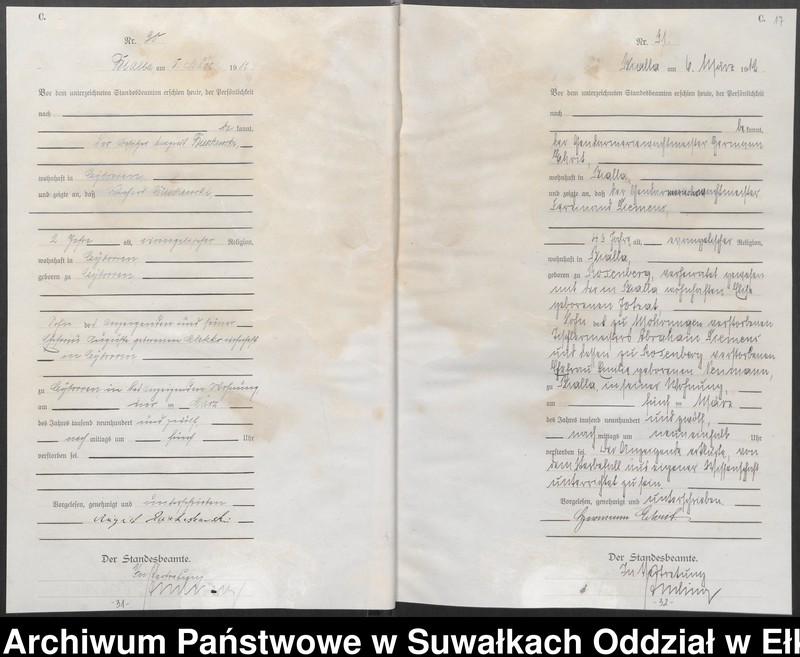 C.
Nr. 30
am 5. März 1912
Vor dem unterzeichneten Standesbeamten erschien heute, der Persönlichkeit
nach
be kannt,
der Besitzer August
wohnhaft in
und zeigte an, daß
2 Jahre alt, evangelischer Religion,
wohnhaft in
geboren zu
Sohn des Anzeigenden und seiner
Ehefrau Auguste geborenen
in
zu in des Anzeigenden Wohnung
am vier ten März
des Jahres tausend neunhundert und zwölf
nach mittags um fünf Uhr
verstorben sei.
Vorgelesen, genehmigt und unterschrieben
August
Der Standesbeamte.
In Vertretung
-31-
C. 17
Nr. 31.
Skalla am 6. März 1912
Vor dem unterzeichneten Standesbeamten erschien heute, der Persönlichkeit
nach
be kannt,
der Gendarmeriewachtmeister Hermann
wohnhaft in Skalla,
und zeigte an, daß der Gendarmeriewachtmeister
Ferdinand Siemens,
43 Jahre alt, evangelischer Religion,
wohnhaft in Skalla,
geboren zu Rosenberg, verheiratet gewesen
mit der in Skalla wohnhaften
geborenen
Sohn des zu Mohrungen verstorbenen
Tischlermeisters Abraham Siemens
und dessen zu Rosenberg verstorbenen
Ehefrau Emilie geborenen Neumann,
zu Skalla, in seiner Wohnung,
am fünf ten März
des Jahres tausend neunhundert und zwölf,
nach mittags um neuneinhalb Uhr
verstorben sei. Der Anzeigende erklärte, von
dem Sterbefall aus eigener Wissenschaft
unterrichtet zu sein.
Vorgelesen, genehmigt und unterschrieben
Hermann
Der Standesbeamte.
In Vertretung
-32-
Archiwum Państwowe w Suwałkach Oddział w Ełk